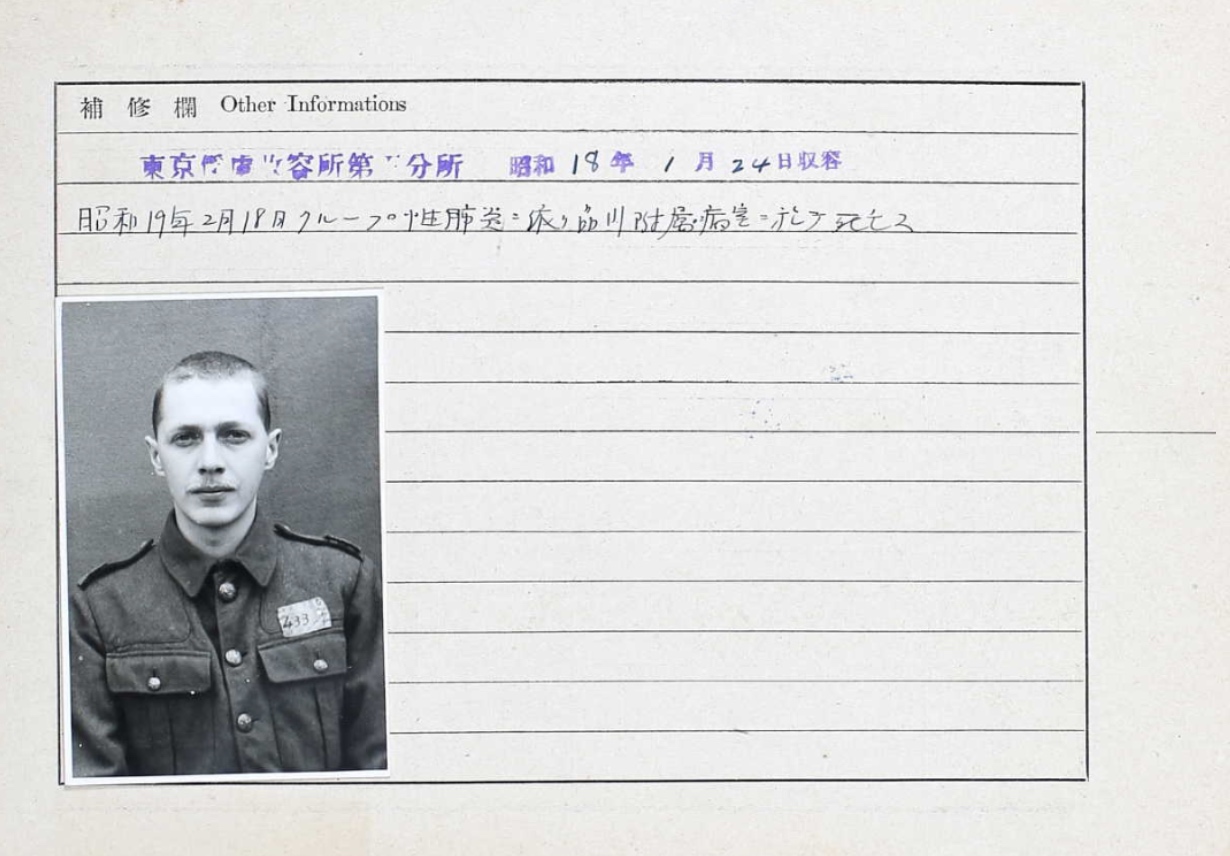 補修欄 Other Informations
東京俘虜収容所第 分所 昭和18年1月24日収容
昭和19年2月18日クループ性肺炎ニ依リ品川附属病室ニ於テ死亡ス
433